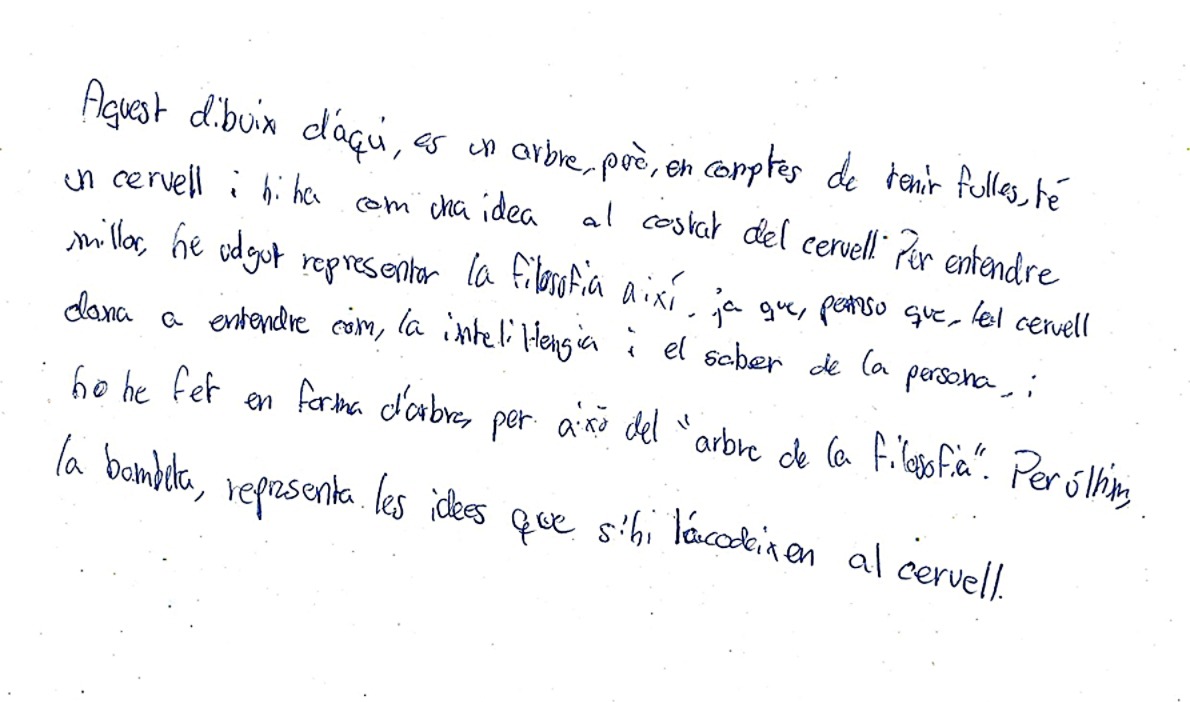 Aquest dibuix d'aquí, es un arbre, però, en comptes de tenir fulles, té
un cervell i hi ha com una idea al costat del cervell. Per entendre
millor, he volgut representar la filosofia així, ja que, penso que, el cervell
dona a entendre com, la intel·ligengia i el saber de la persona, i
ho he fet en forma d'arbre, per això del "arbre de la filosofia". Per últim,
la bombeta, representa les idees que s'hi acodeixen al cervell.